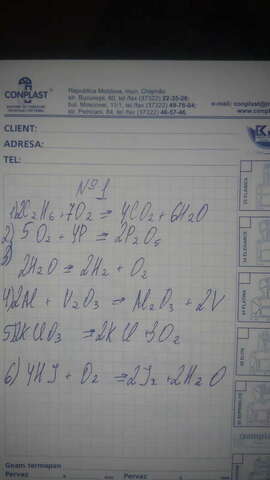 CONPLAST
Republica Moldova, mun. Chişinău
str. Bucureşti, 60, tel./fax (37322) 22-35-28;
bul. Moscovei, 11/1, tel./fax (37322) 49-78-04;
str. Petricani, 84, tel./fax (37322) 46-57-46.
e-mail: conplast@
www.
CLIENT:
ADRESA:
TEL:
№1
1) 2C₂H₆ + 7O₂ ⇒ 4CO₂ + 6H₂O
2) 5O₂ + 4P ⇒ 2P₂O₅
3)
2H₂O ⇒ 2H₂ + O₂
4) 2Al + V₂O₃ ⇒ Al₂O₃ + 2V
5) 2KClO₃ ⇒ 2KCl 3O₂
6) 4HJ + O₂ ⇒ 2J₂ + 2H₂O
Geam termopan
Pervaz
Pervaz